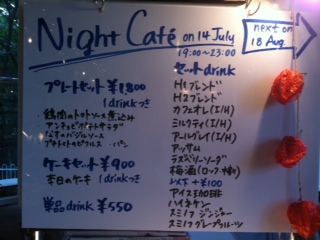 Night Café on 14 July
19:00~23:00
next on
18 Aug.
プレートセット ¥1800
1drinkつき
・鶏肉のトマトソース煮込み
・アンチョビポテトサラダ
・なすのバジルソース
・プチトマトのピクルス ・パン
ケーキセット ¥900
本日のケーキ 1drinkつき
単品drink ¥550
セットdrink
H1ブレンド
H2ブレンド
カフェオレ(I/H)
ミルクティ(I/H)
アールグレイ(I/H)
アッサム
ラズベリーソーダ
梅酒(ロック・水割り)
以下 +¥100
アイリス珈琲
ハイネケン
スミノフ ジンジャー
スミノフ グレープフルーツ